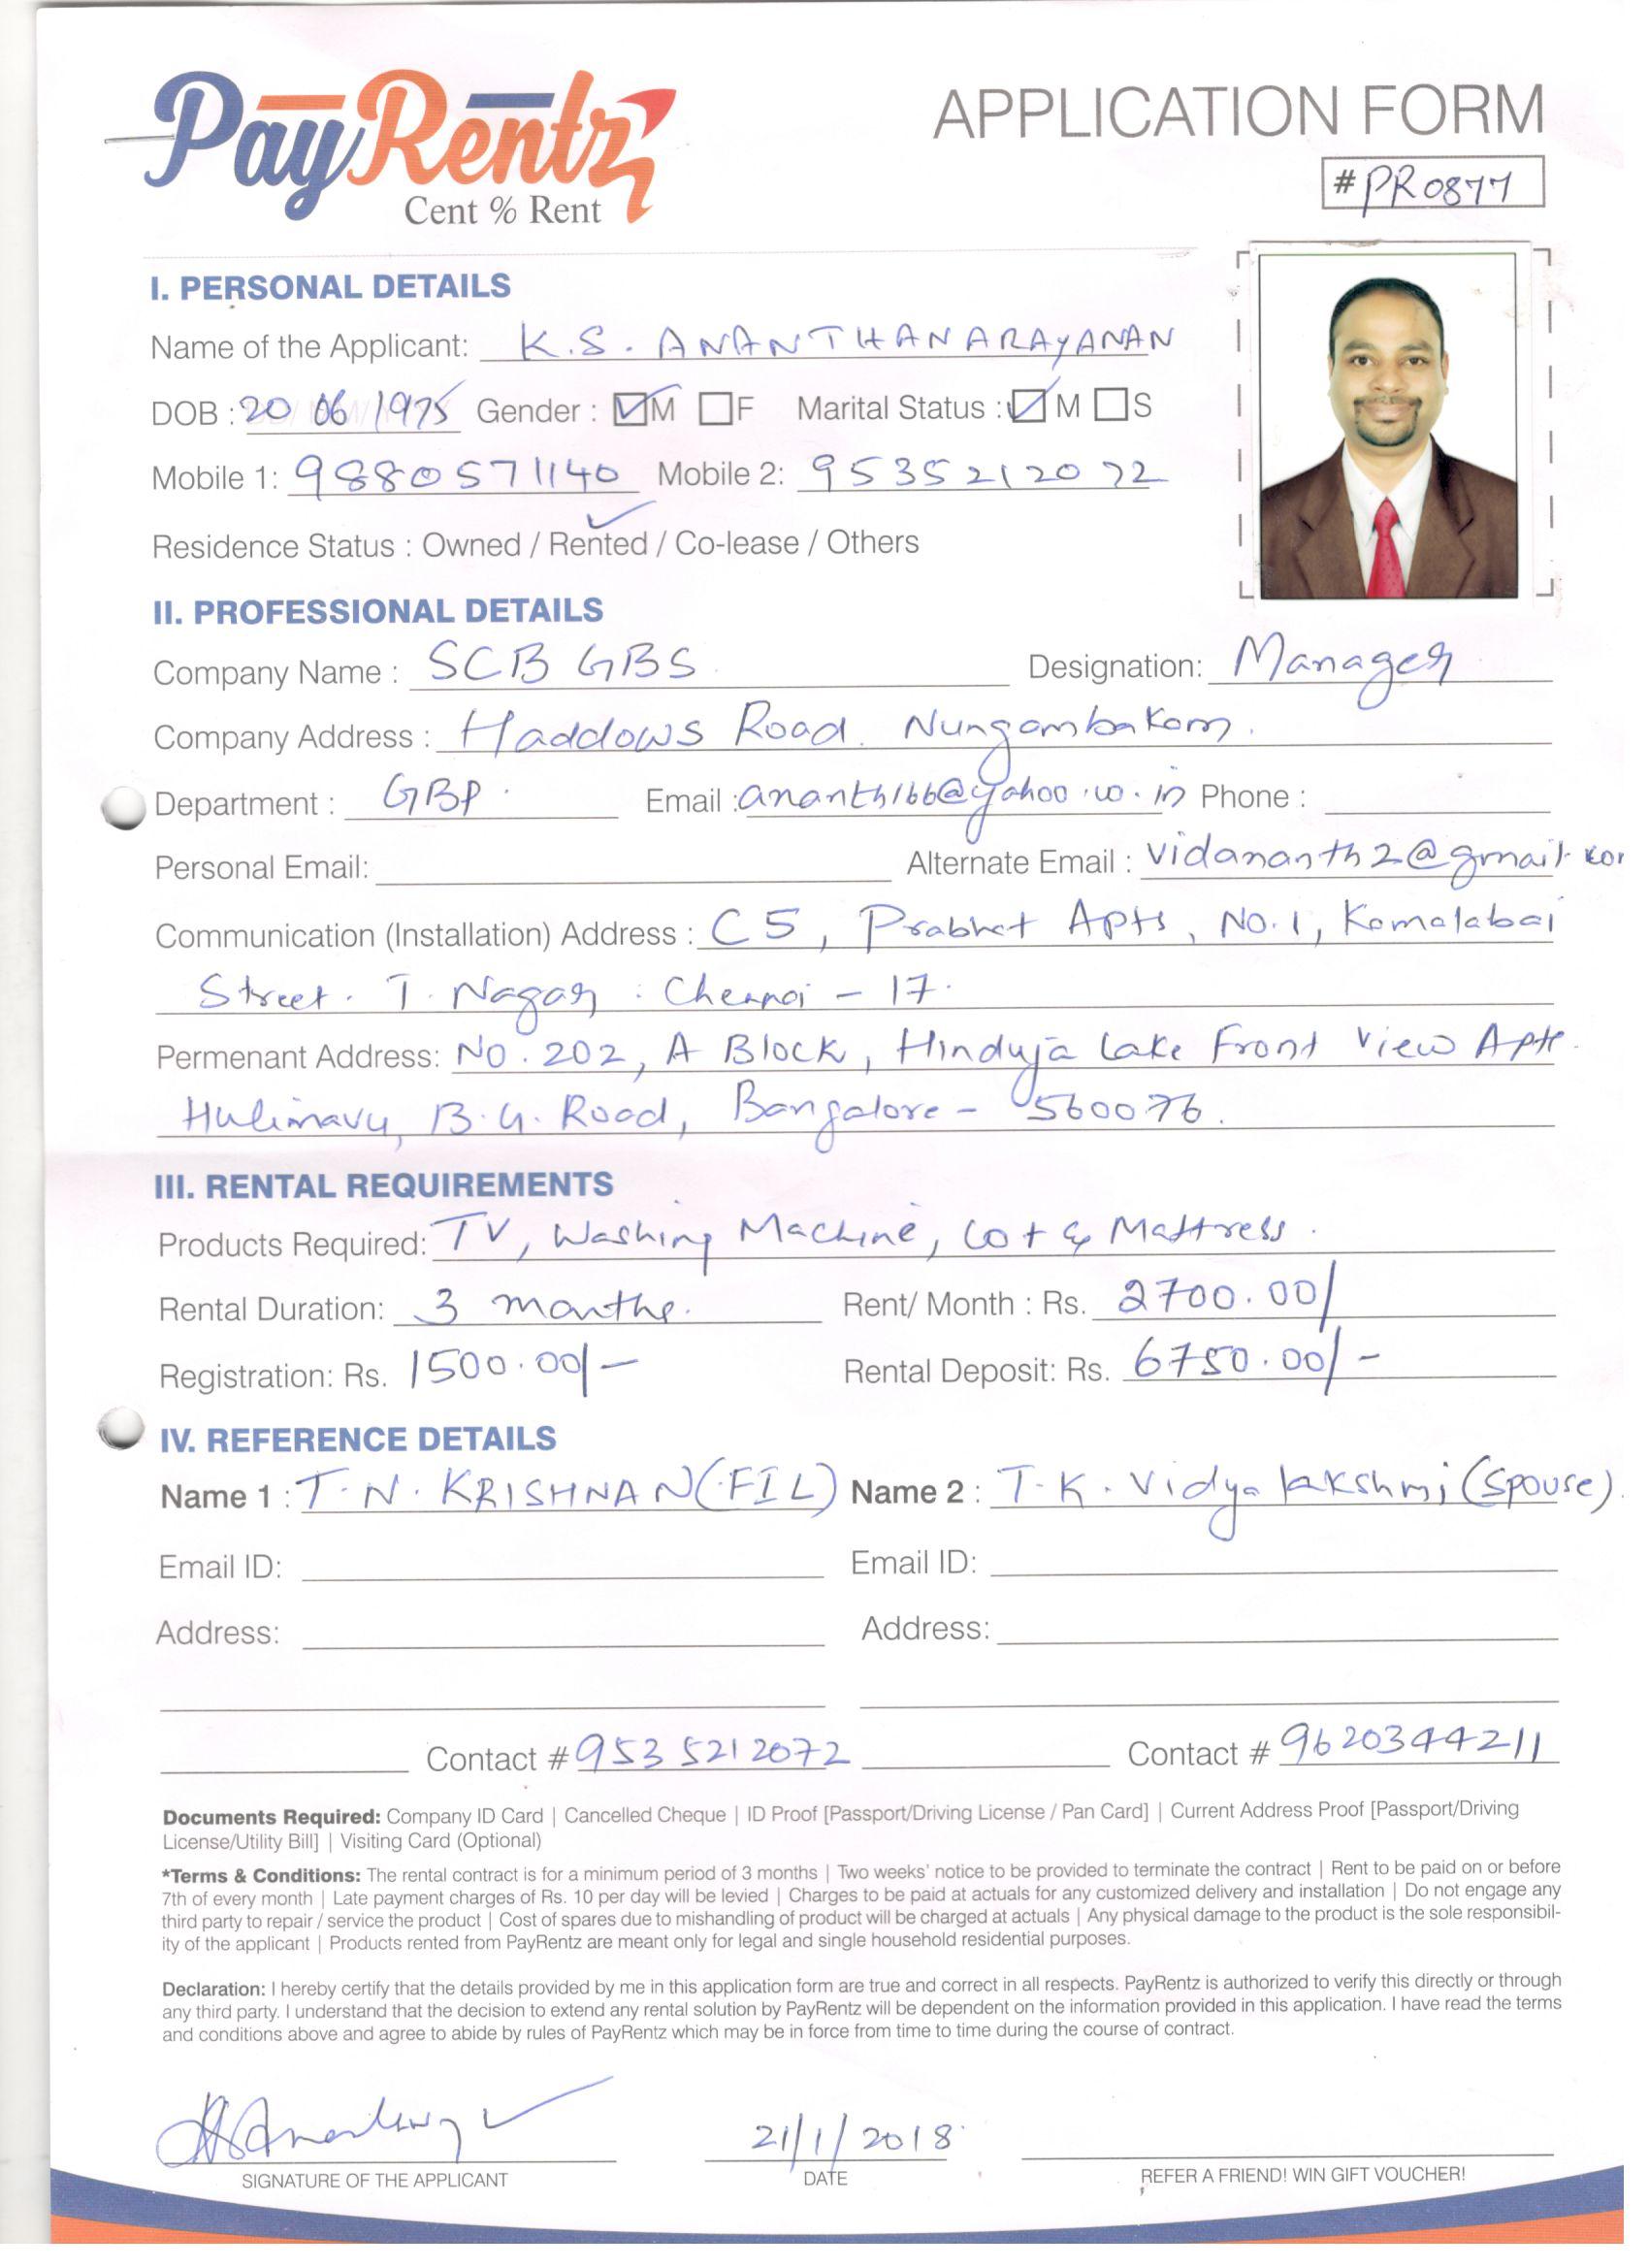 PayRentz
Cent % Rent
APPLICATION FORM
#PR0877
I. PERSONAL DETAILS
Name of the Applicant: K.S. ANANTHANARAYANAN
DOB : 20 06 1975 Gender : M F Marital Status : M S
Mobile 1: 9880571140 Mobile 2: 9535212072
Residence Status : Owned / Rented / Co-lease / Others
II. PROFESSIONAL DETAILS
Company Name : SCB GBS Designation: Manager
Company Address : Haddows Road. Nungambakam.
Department : GBP. Email : ananth166@yahoo.co.in Phone :
Personal Email: Alternate Email : vidananth2@gmail.com
Communication (Installation) Address : C5, Prabhat Apts, No.1, Kamalabai
Street. T. Nagar : Chennai - 17.
Permenant Address: No. 202, A Block, Hinduja Lake Front View Apts.
Hulimavu, B.G. Road, Bangalore - 560076.
III. RENTAL REQUIREMENTS
Products Required: TV, Washing Machine, Cot & Mattress.
Rental Duration: 3 months. Rent/ Month : Rs. 2700.00/
Registration: Rs. 1500.00/- Rental Deposit: Rs. 6750.00/-
IV. REFERENCE DETAILS
Name 1 : T.N. KRISHNAN (FIL) Name 2 : T.K. Vidya lakshmi (Spouse).
Email ID: Email ID:
Address: Address:
Contact # 9535212072 Contact # 9620344211
Documents Required: Company ID Card | Cancelled Cheque | ID Proof [Passport/Driving License / Pan Card] | Current Address Proof [Passport/Driving
License/Utility Bill] | Visiting Card (Optional)
*Terms & Conditions: The rental contract is for a minimum period of 3 months | Two weeks' notice to be provided to terminate the contract | Rent to be paid on or before
7th of every month | Late payment charges of Rs. 10 per day will be levied | Charges to be paid at actuals for any customized delivery and installation | Do not engage any
third party to repair / service the product | Cost of spares due to mishandling of product will be charged at actuals | Any physical damage to the product is the sole responsibil-
ity of the applicant | Products rented from PayRentz are meant only for legal and single household residential purposes.
Declaration: I hereby certify that the details provided by me in this application form are true and correct in all respects. PayRentz is authorized to verify this directly or through
any third party. I understand that the decision to extend any rental solution by PayRentz will be dependent on the information provided in this application. I have read the terms
and conditions above and agree to abide by rules of PayRentz which may be in force from time to time during the course of contract.
21/1/2018
SIGNATURE OF THE APPLICANT DATE REFER A FRIEND! WIN GIFT VOUCHER!